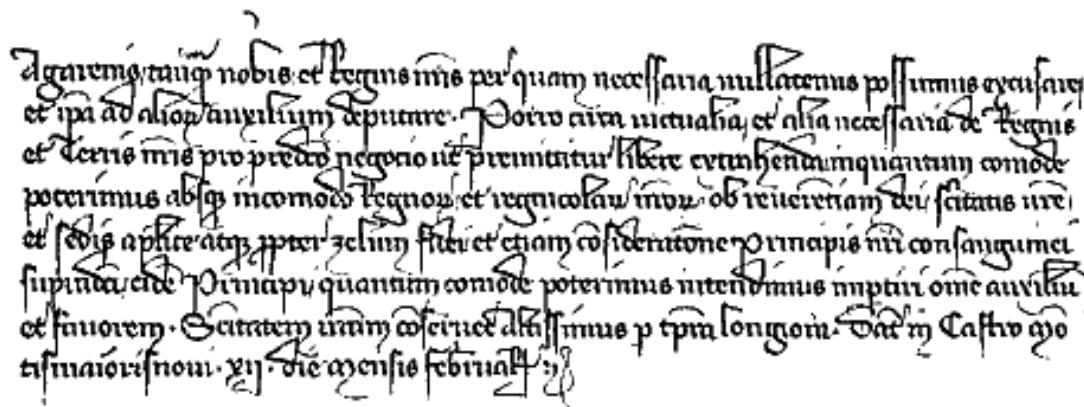 Agaremꝰ tamqꝫ nobis et Regnis nr̄is per quam necessaria nullatenus possumus excusare
et ip̄a ad alioꝝ auxilium deputare · Porro circa victualia, et alia necessaria de Regnis
et Terris nr̄is pro predc̄o negocio ut premittitur libere extrahenda inquantum comode
poterimus absqꝫ incomodo Regnoꝝ et regnicolaꝝ nr̄oꝝ ob reuerētiam dei, sc̄itatis vr̄e
et sedis ap̄lice atqꝫ ꝓpter zelum fidei et etiam cōsideratōne Principis nr̄i consanguinei
sup̄adicti eidē Principi quantum comode poterimus intendimus imptiri om̄e auxiliū
et fauorem · Sc̄itatem vr̄am cōseruet altissimus p tp̄ra longiora · Dat̄ in Castro Mō
tismaiorisnoui · xij · die mensis februarij